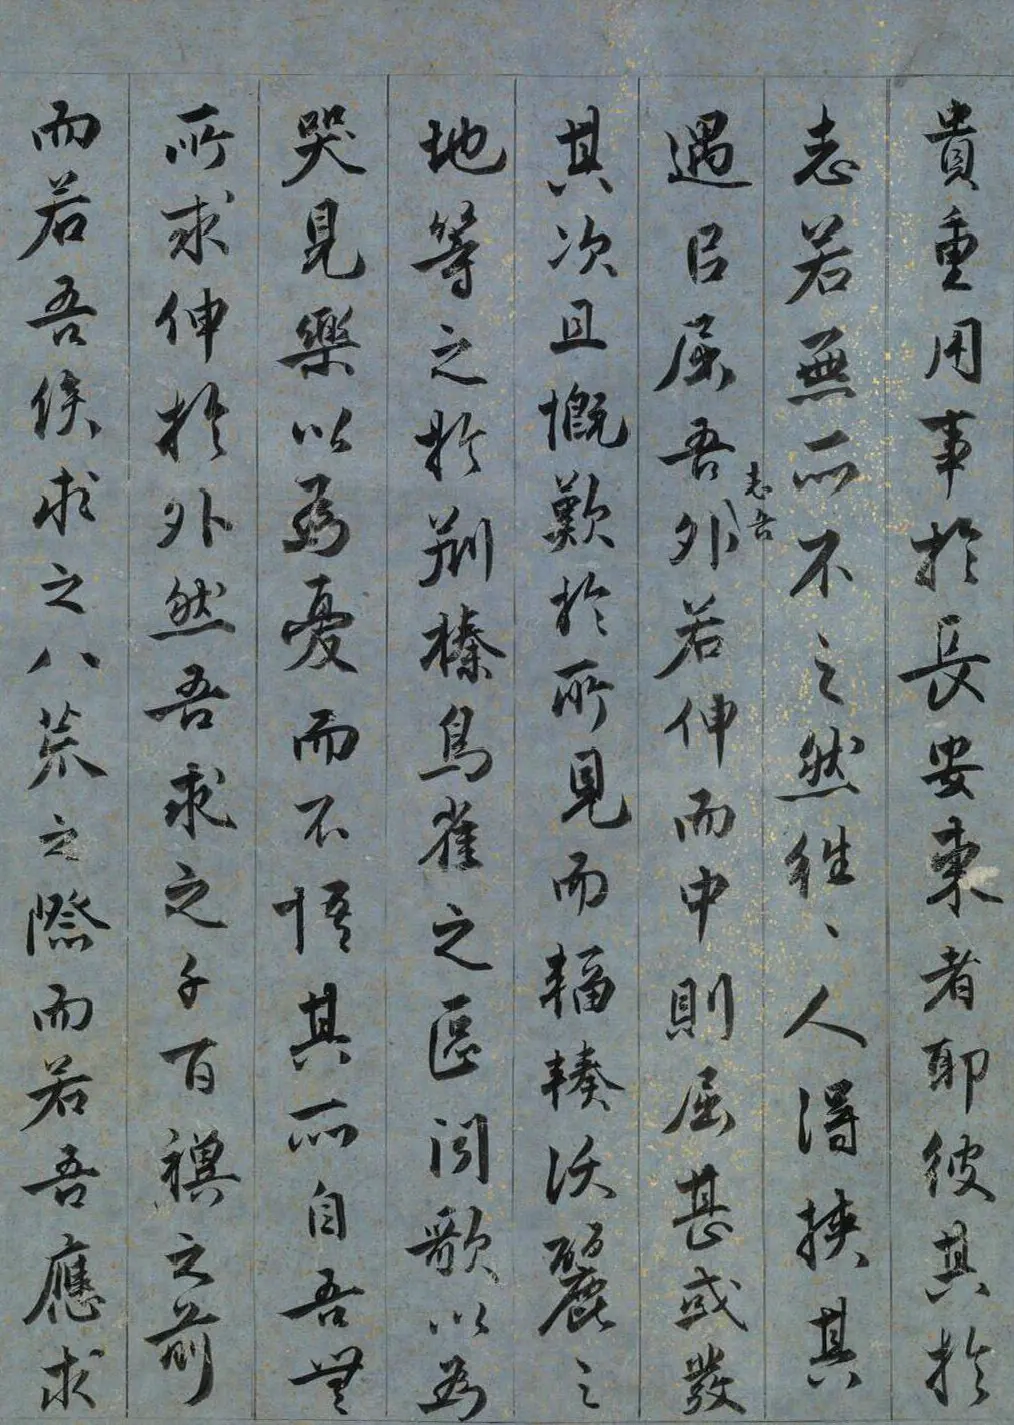 貴重用事於長安東者耶彼其於
志若無所不之然往、人得挾其
遇以屈吾外若伸而中則屈甚或發
志吾
其次且慨歎於所見而輻輳沃麗之
地等之於荊榛鳥雀之區聞歌以為
哭見樂以為憂而不悟其所自吾無
所求伸於外然吾求之千百禩之前
而若吾俟求之八荒之際而若吾應求